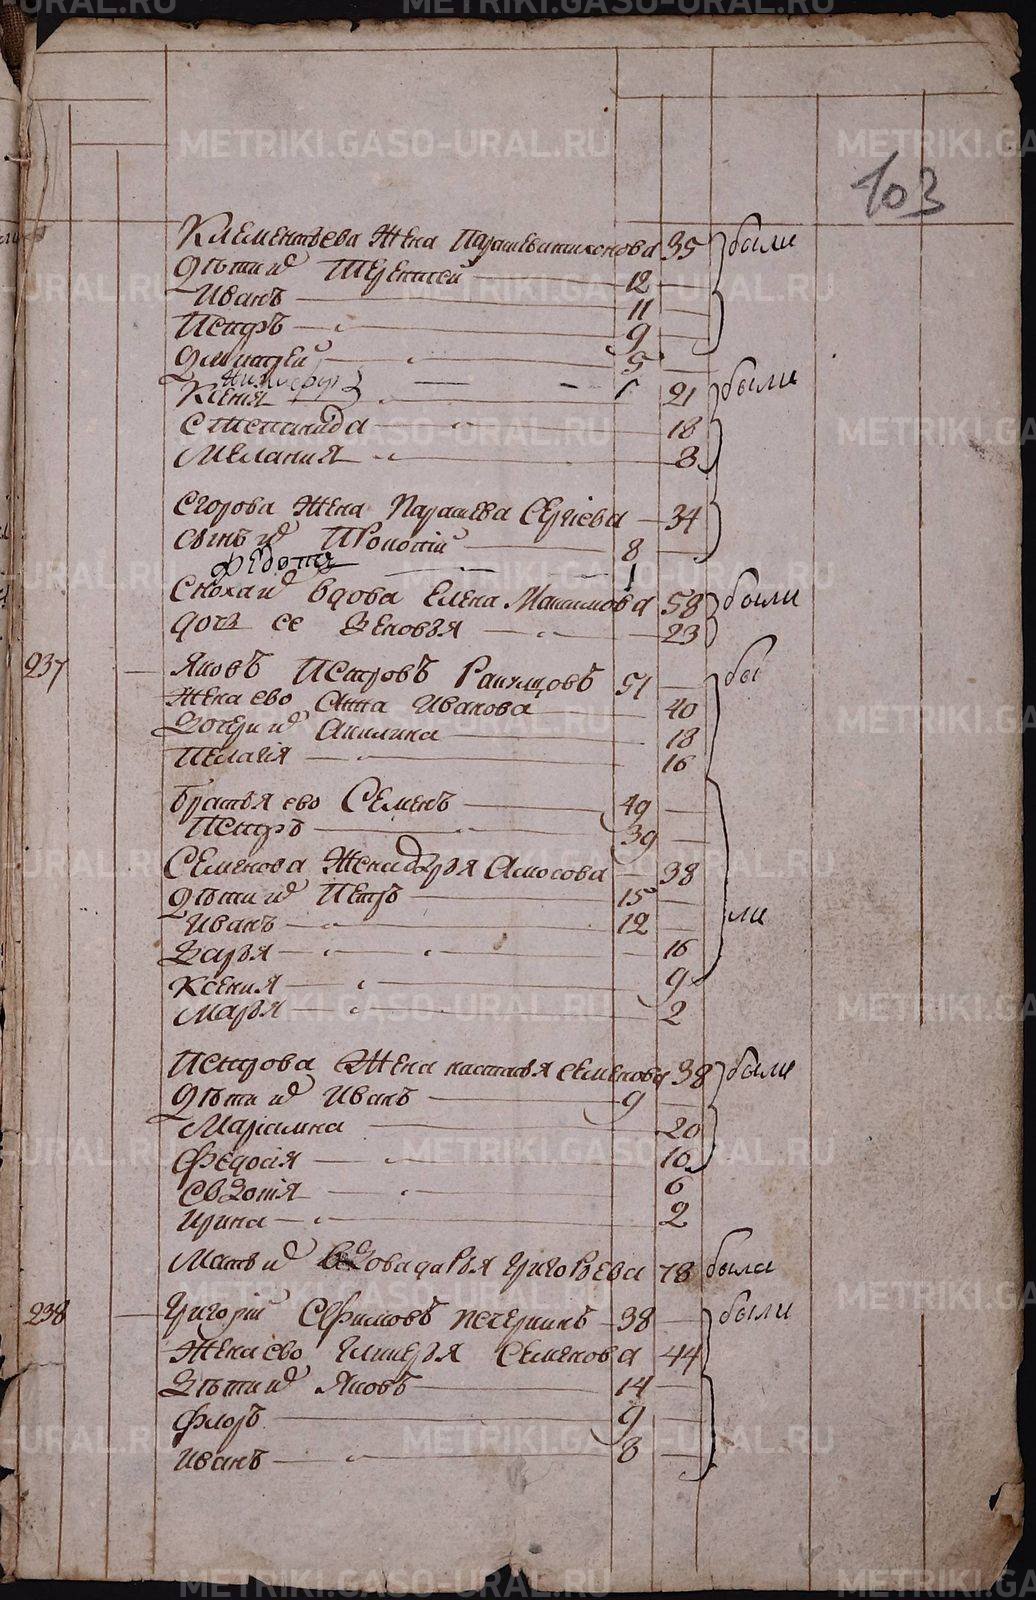 103
Климентьева жена Парасева Тихонова 35 были
Дѣти ихъ Терентей 12
Иванъ 11
Петръ 9
Дмитрей 5
Никифоръ 1
Ксения 21 были
Степанида 18
Мелания 8
Егорова жена Парасева Сергіева 34
Сынъ ихъ Прокопій 8
Федотъ 1
Сноха ихъ вдова Елена Максимова 58 были
Дочь ее Зеновья 23
237 Яковъ Петровъ 51 бы
Жена ево Анна Иванова 40
Дочери ихъ Акилина 18
Пелагія 16
Братья ево Семенъ 49
Петръ 39
Семенова жена Дарья Амосова 38
Дѣти ихъ Петръ 15
Иванъ 12 ли
Дарья 16
Ксения 9
Марья 2
Петрова жена Настасья Семенова 38 были
Дѣти ихъ Иванъ 9
Маріамна 20
Федосія 16
Евдотія 6
Ирина 2
Мать ихъ вдова Дарья Григорьева 78 была
238 Григорій Ефимовъ Печеркинъ 38 были
Жена ево Гликерья Семенова 44
Дѣти ихъ Яковъ 14
Флоръ 9
Иванъ 8
METRIKI.GASO-URAL.RU